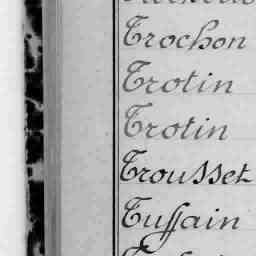 Trochon
Trotin
Trotin
Trousset
Tussain